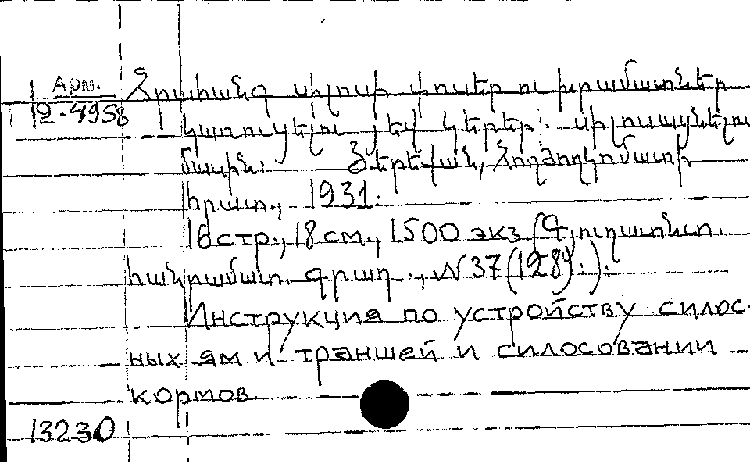 Арм.
2-4958
Հրահանգ սիլոսի փոսեր ու խրամատներ
կառուցելու յեվ կերեր սիլոսացնելու
մասին. Յերեվան, Հողժողկոմատի
հրատ., 1931.
16стр., 18 см., 1500 экз. (Գյուղատնտ.
հանրամատ. գրադ., № 37 (1284).).
Инструкция по устройству силос-
ных ям и траншей и силосовании
кормов
13230